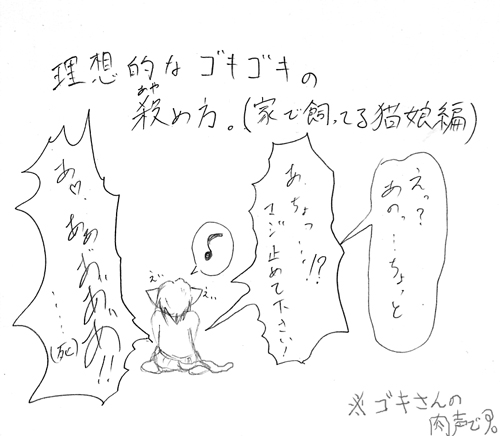 理想的なゴキゴキの
殺め方。(家で飼ってる猫娘編)
あや
えっ?
あのっ…ちょ、と
あ、ちょっ…!?
マジ止めて下さい!
あ♡、
ああ
あ゛あ゛あ゛!!
……(死)
※ゴキさんの
肉声です。